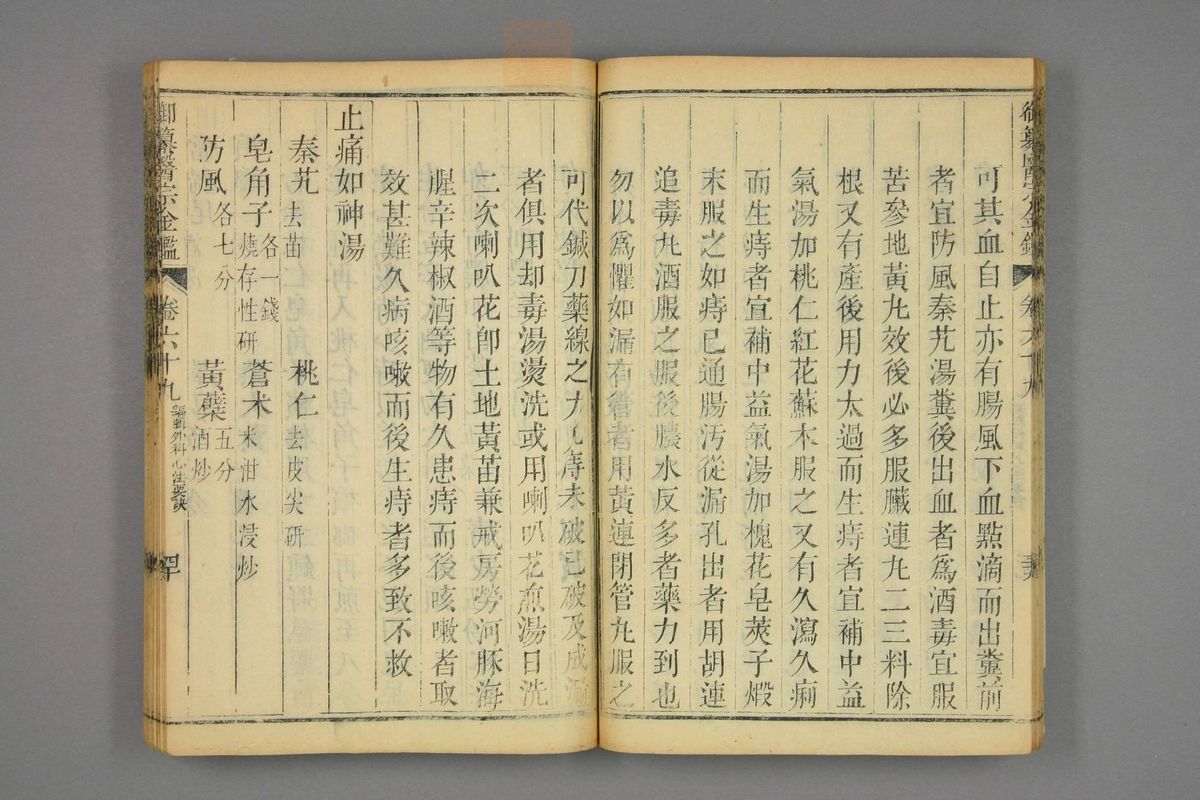 御纂醫宗金鑑 卷六十九
可其血自止亦有腸風下血點滴而出糞前
者宜防風秦艽湯糞後出血者爲酒毒宜服
苦參地黃丸效後必多服臟連丸二三料除
根又有產後用力太過而生痔者宜補中益
氣湯加桃仁紅花蘇木服之又有久瀉久痢
而生痔者宜補中益氣湯加槐花皂莢子煅
末服之如痔已通腸汚從漏孔出者用胡連
追毒丸酒服之服後膿水反多者藥力到也
勿以爲懼如漏有管者用黃連閉管丸服之
可代鍼刀藥線之力凡痔未破已破及成漏
者俱用却毒湯燙洗或用喇叭花煎湯日洗
二次喇叭花卽土地黃苗兼戒房勞河豚海
腥辛辣椒酒等物有久患痔而後咳嗽者取
效甚難久病咳嗽而後生痔者多致不救
止痛如神湯
秦艽去苗 桃仁去皮尖研
皂角子燒存性研各一錢 蒼朮米泔水浸炒
防風各七分 黃蘗五分酒炒
御纂醫宗金鑑 卷六十九 編輯外科心法要訣